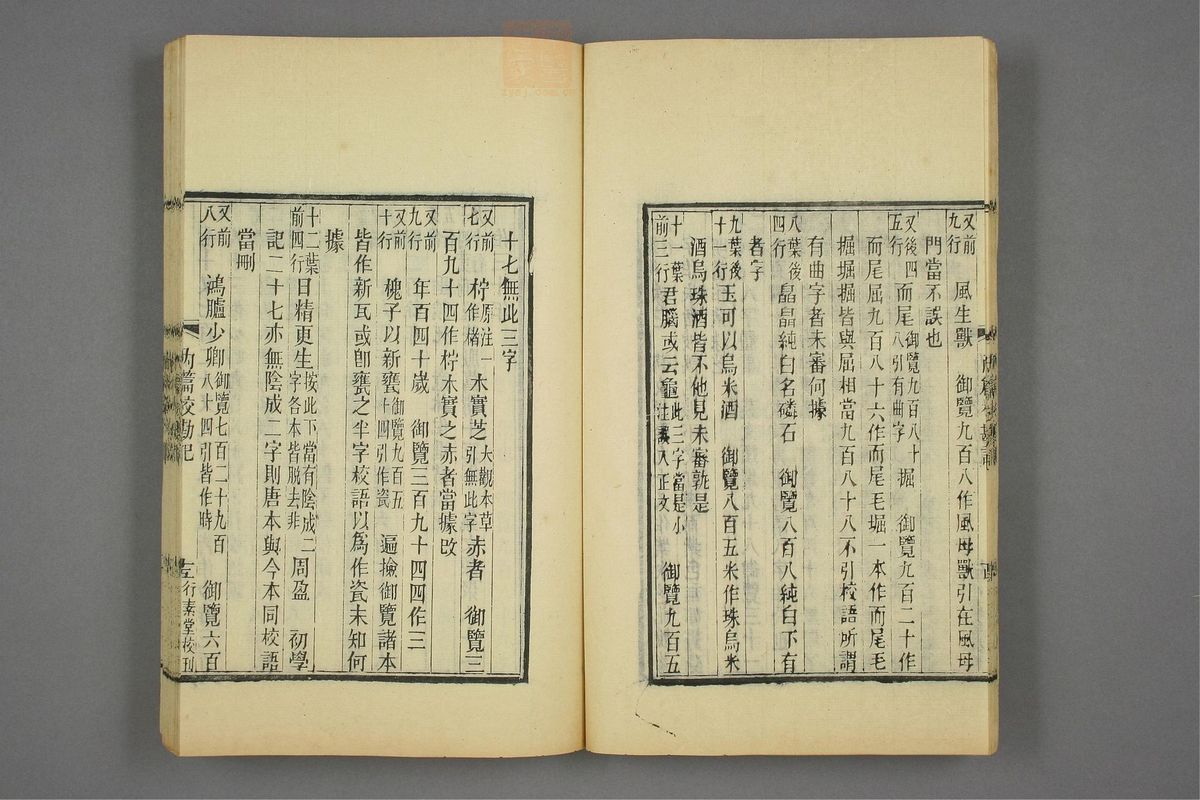 又前九行 風生獸 御覽九百八作風母獸引在風母
門當不誤也
又後四五行 而尾 御覽九百八十八引有曲字 掘 御覽九百二十作
而尾屈九百八十六作而尾毛堀一本作而尾毛
掘堀掘皆與屈相當九百八十八不引校語所謂
有曲字者未審何據
八葉後四行 皛皛純白名磷石 御覽八百八純白下有
者字
九葉後十一行 玉可以烏米酒 御覽八百五米作珠烏米
酒烏珠酒皆不他見未審孰是
十一葉前三行 君腦或云龜 此三字當是小注誤入正文 御覽九百五
十七無此三字
又前七行 柠 原注一作楮 木實芝 大觀本草引無此字 赤者 御覽三
百九十四作柠木實之赤者當據改
又前九行 年百四十歲 御覽三百九十四四作三
又前十行 槐子以新甕 御覽九百五十四引作瓷 遍撿御覽諸本
皆作新瓦或卽甕之半字校語以爲作瓷未知何
據
十二葉前四行 日精更生 按此下當有陰成二字各本皆脫去非 周盈 初學
記二十七亦無陰成二字則唐本與今本同校語
當刪
又前八行 鴻臚少卿 御覽七百二十九百八十四引皆作時 御覽六百
內篇校勘記
行素堂校刊